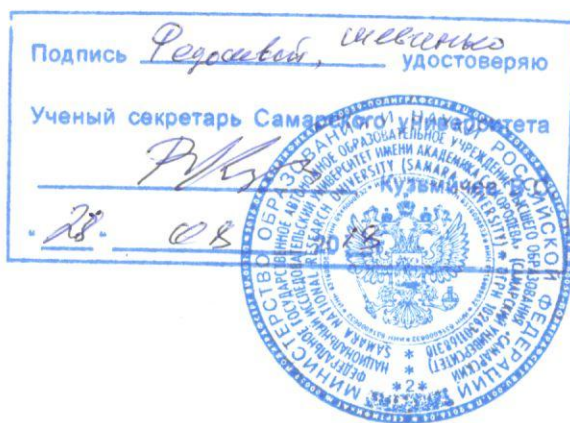 Подпись Федосеевой, Шевченко удостоверяю
Ученый секретарь Самарского университета
Кузьмичев В.С.
"28" 08 2018
МИНИСТЕРСТВО ОБРАЗОВАНИЯ И НАУКИ РОССИЙСКОЙ ФЕДЕРАЦИИ
ФЕДЕРАЛЬНОЕ ГОСУДАРСТВЕННОЕ АВТОНОМНОЕ ОБРАЗОВАТЕЛЬНОЕ УЧРЕЖДЕНИЕ ВЫСШЕГО ОБРАЗОВАНИЯ «САМАРСКИЙ
НАЦИОНАЛЬНЫЙ ИССЛЕДОВАТЕЛЬСКИЙ УНИВЕРСИТЕТ ИМЕНИ АКАДЕМИКА С.П. КОРОЛЕВА» (САМАРСКИЙ УНИВЕРСИТЕТ)
SAMARA NATIONAL RESEARCH UNIVERSITY (SAMARA UNIVERSITY) * ОГРН 1026301168310
* 2 *